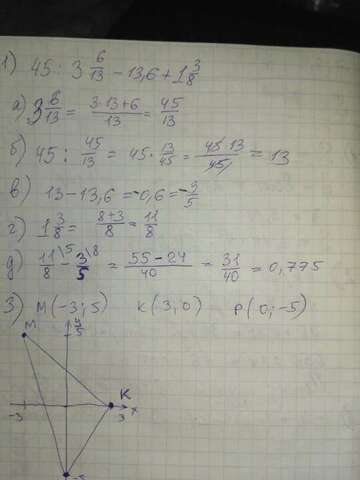 1) 45 : 3 6/13 - 13,6 + 1 3/8
а) 3 6/13 = (3·13+6)/13 = 45/13
б) 45 : 45/13 = 45 · 13/45 = (45·13)/45 = 13
в) 13 - 13,6 = -0,6 = -3/5
г) 1 3/8 = (8+3)/8 = 11/8
д) 11/8 \5 - 3/5 \8 = (55-24)/40 = 31/40 = 0,775
3) М(-3; 5) К(3; 0) Р(0; -5)
М y
5
К
-3 3 x
-5